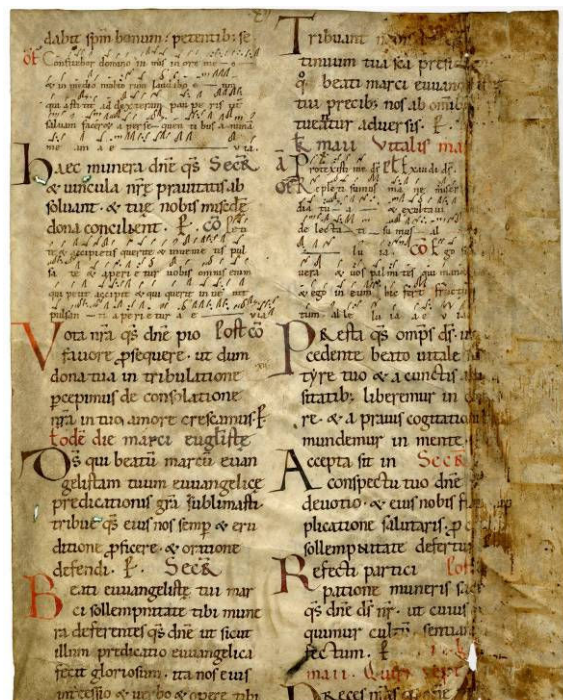 dabit spm bonum: petentib: se
Of Confitebor domino in mis in ore me o
& in medio multorum laudabo e
qui astitit ad dexteram pauperis ut
salvam faceret a persequentibus anima
me am a e via.
haec munera dne qs Secr
& uincula nre prauitatis ab
soluant · & tue nobis miscde
dona concilient · P. cō
te & accipietis querite & inuenietis pul
sate & aperietur uobis omnis enim
qui petit accipit & qui querit inuenit
pulsanti aperietur a e via
Vota nra qs dne pio Postco
fauore psequere · ut dum
dona tua in tribulatione
pcepimus de consolatione
nra in tuo amore crescamus P
Eodē die marci euglistę
Ds qui beatū marcū euan
gelistam tuum euuangelicę
predicationis gra sublimasti ·
tribue qs eius nos semp & eru
ditione pficere · & oratione
defendi · P. Secr
Beati euuangelistę tui mar
ci sollempnitate tibi mune
ra deferentes qs dne ut sicut
illum predicatio euuangelica
fecit gloriosum · ita nos eius
intcessio & uerbo & opere tibi
Tribuant
tinuum tua sca presi
q beati marci euuang
tua precib; nos ab omib
tueatur aduersis · P.
k maii Vitalis ma
Protexisti me ds Exaudi ds
Of Repleti sumus mane miser
dia tua & exultaui
delectati sumus al
lu ia. cō Ego s
uera & uos palmites qui mane
& ego in eum hic fert fructu
tum alle lu ia a e v ia
Presta qs omps ds · u
cedente beato uitale
tyre tuo & a cunctis
sitatib; liberemur in c
re · & a prauis cogitatio
mundemur in mente
Accepta sit in Secr
conspectu tuo dne
deuotio · & eius nobis fi
plicatione salutaris · p c
sollempnitate defertur
Refecti partici Post
patione muneris sac
qs dne ds nr · ut cuius
quimur cultū sentia
fectum · P
maii.
Preces